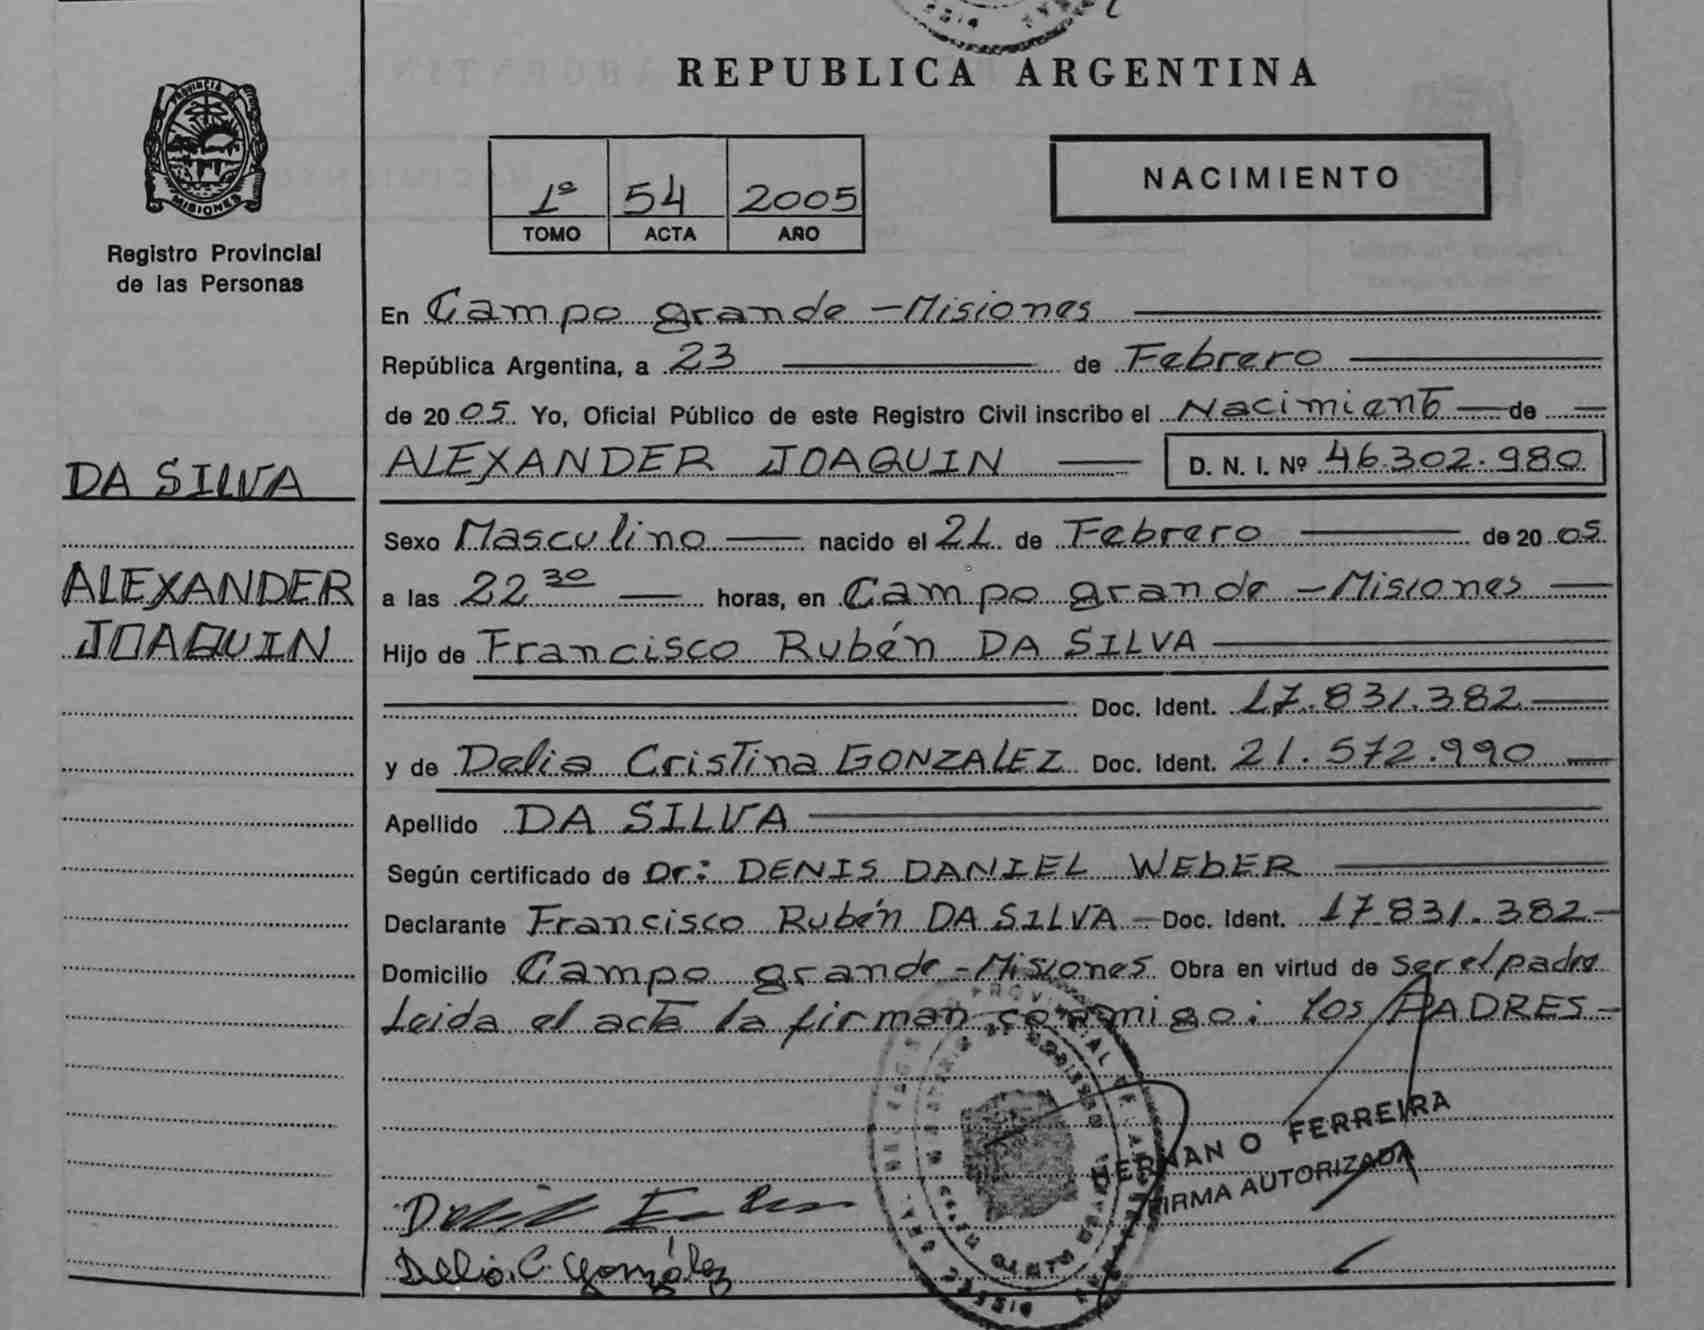 REPUBLICA ARGENTINA
PROVINCIA DE
MISIONES
Registro Provincial
de las Personas
1º 54 2005
TOMO ACTA AÑO
NACIMIENTO
En Campo grande - Misiones
República Argentina, a 23 de Febrero
de 2005. Yo, Oficial Público de este Registro Civil inscribo el Nacimiento de
ALEXANDER JOAQUIN D. N. I. Nº 46.302.980
DA SILVA
ALEXANDER
JOAQUIN
Sexo Masculino nacido el 21 de Febrero de 2005
a las 22 30 horas, en Campo grande - Misiones
Hijo de Francisco Rubén DA SILVA
Doc. Ident. 17.831.382
y de Delia Cristina GONZALEZ Doc. Ident. 21.572.990
Apellido DA SILVA
Según certificado de Dr: DENIS DANIEL WEBER
Declarante Francisco Rubén DA SILVA - Doc. Ident. 17.831.382-
Domicilio Campo grande - Misiones Obra en virtud de ser el padre
Leida el acta la firman conmigo: los PADRES-
HERNAN O FERREIRA
FIRMA AUTORIZADA
Delia C. González